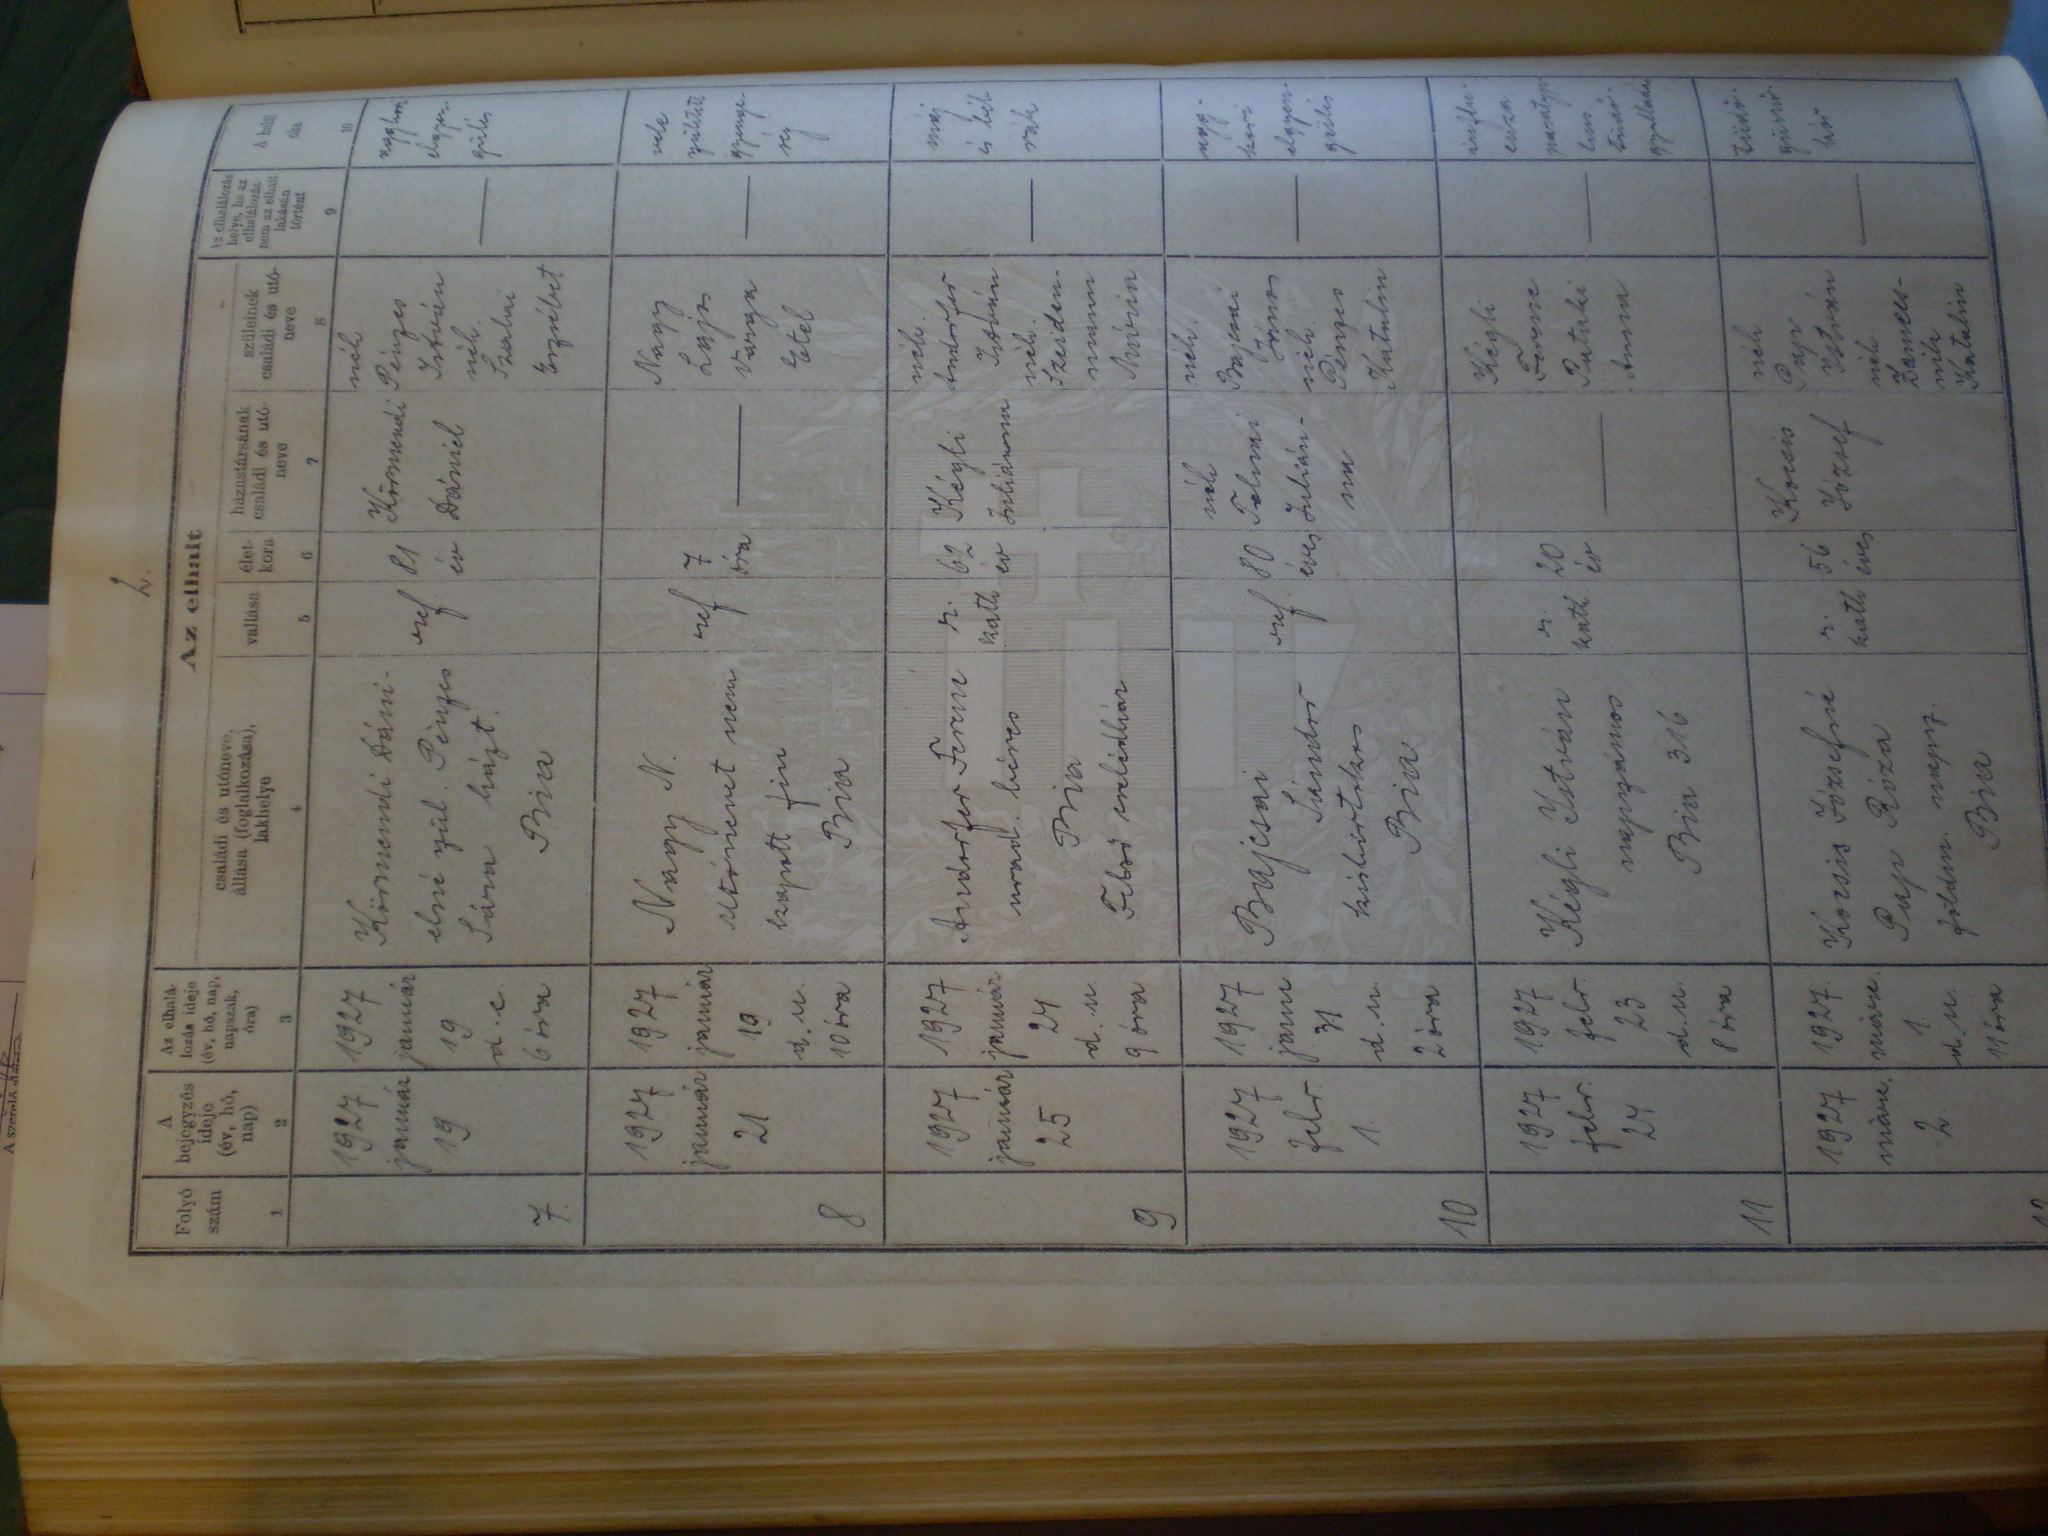 2.
Az elhalt
Folyó
szám
1
A
bejegyzés
ideje
(év, hó,
nap)
2
Az elhalá-
lozás ideje
(év, hó, nap,
napszak,
óra)
3
családi és utóneve,
állása (foglalkozása),
lakhelye
4
vallása
5
élet-
kora
6
házastársának
családi és utó-
neve
7
szüleinek
családi és utó-
neve
8
Az elhalálozás
helye, ha az
elhalálozás
nem az elhalt
lakásán
történt
9
A halál
oka
10
7.
1927
január
19
1927
január
19
d. e.
6 óra
Körmendi Dáni-
elné szül. Pénzes
Sára házt.
Bia
ref.
81
év
Körmendi
Dániel
néh
Pénzes
István
néh.
Szabai
Erzsébet
aggkori
elgyen-
gülés
8
1927
január
21
1927
január
19
d. u.
10 óra
Nagy N.
utónevet nem
kapott fiu
Bia
ref
7
óra
Nagy
Lajos
Varga
Etel
vele
született
gyenge-
ség
9
1927
január
25
1927
január
24
d. u.
9 óra
Andorfer Ferenc
urad. béres
Bia
Felső cselédház
r.
kath
62
év
Kégli
Juliánna
néh.
Andorfer
István
néh.
Mária
máj
és bél
rák
10
1927
febr.
1.
1927
janu
31
d. u.
2 óra
Bajcsai
Sándor
kisbirtokos
Bia
ref.
80
éves
néh
Julián-
na
néh.
Bajcsai
János
néh.
Pénzes
Katalin
agg-
kori
elgyen-
gülés
11
1927
febr.
24
1927
febr.
23
d. u.
8 óra
Kégli István
napszámos
Bia 316
r.
kath.
20
év
Kégli
Ferenc
Pataki
Anna
influ-
enza
tüdő-
gyulladás
12
1927
márc.
2.
1927.
márc.
1.
d. u.
11 óra
Kocsis Józsefné
Pap Róza
földm. napsz.
Bia
r.
kath
56
éves
Kocsis
József
néh
Pap
István
néh.
Katalin
tüdő-
gümő-
kór